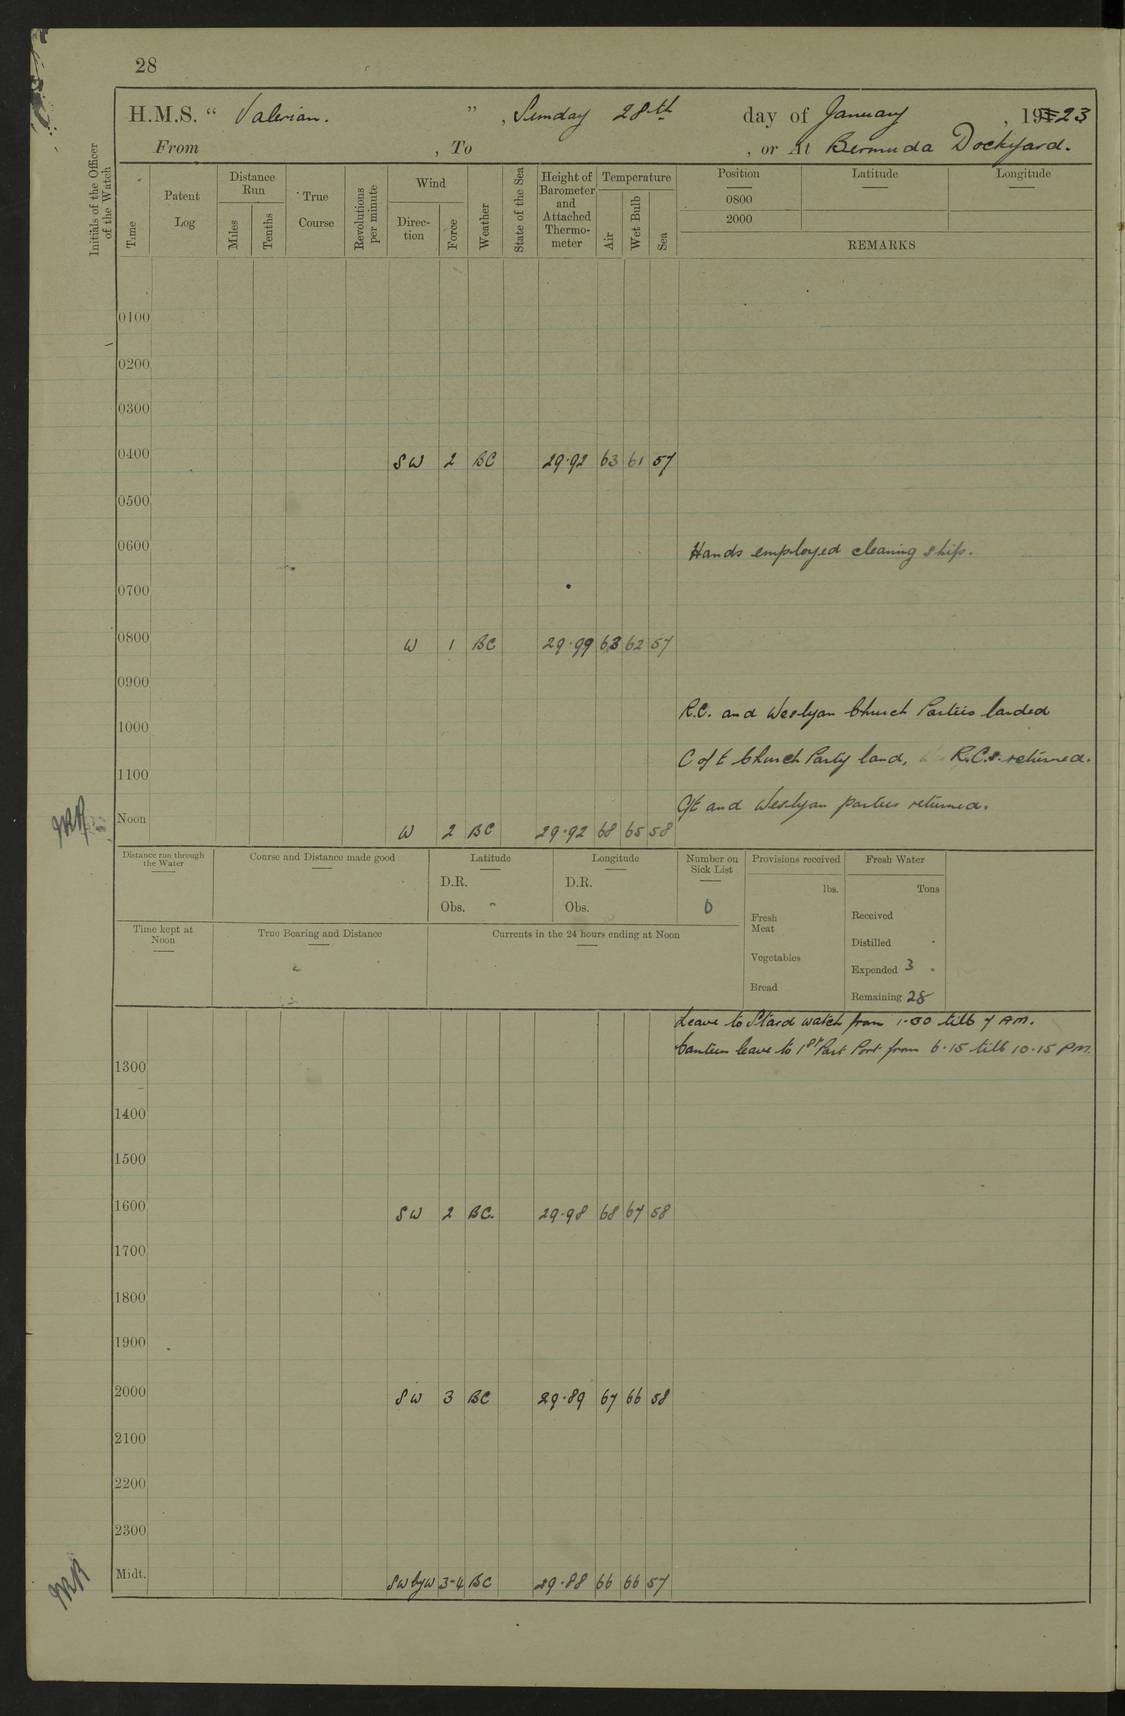 28
H.M.S. “ Valerian. ” , Sunday 28th day of January , 1923
From , To , or At Bermuda Dockyard.
Initials of the Officer of the Watch
Time
Patent Log
Distance Run
Miles
Tenths
True Course
Revolutions per minute
Wind
Direc-tion
Force
Weather
State of the Sea
Height of Barometer and Attached Thermo-meter
Temperature
Air
Wet Bulb
Sea
Position Latitude Longitude
0800
2000
REMARKS
0100
0200
0300
0400 SW 2 BC 29.92 63 61 57
0500
0600 Hands employed cleaning ship.
0700
0800 W 1 BC 29.99 63 62 57
0900
R.C. and Weslyan Church Parties landed
1000
C of E Church Party land, R.C.s. returned.
1100
C/E and Weslyan parties returned.
Noon W 2 BC 29.92 68 65 58
Distance run through the Water
Course and Distance made good
Latitude
D.R.
Obs.
Longitude
D.R.
Obs.
Number on Sick List
0
Provisions received
lbs.
Fresh Meat
Vegetables
Bread
Fresh Water
Tons
Received
Distilled
Expended 3
Remaining 28
Time kept at Noon
True Bearing and Distance
Currents in the 24 hours ending at Noon
Leave to Stard watch from 1.30 till 7 AM.
Canteen leave to 1st Part Port from 6.15 till 10.15 PM.
1300
1400
1500
1600 SW 2 BC. 29.98 68 67 58
1700
1800
1900
2000 SW 3 BC 29.89 67 66 58
2100
2200
2300
Midt. SW by W 3-4 BC 29.88 66 66 57